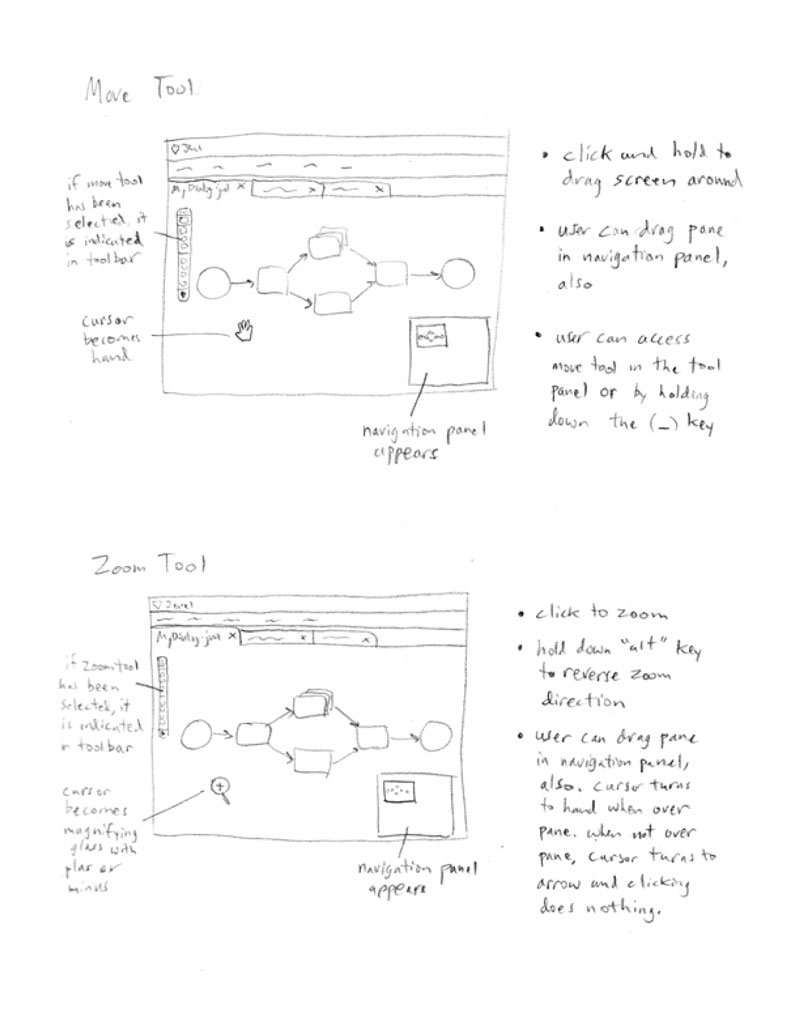 Move Tool
if move tool
has been
selected, it
is indicated
in toolbar
cursor
becomes
hand
navigation panel
appears
• click and hold to
drag screen around
• user can drag pane
in navigation panel,
also
• user can access
move tool in the tool
panel or by holding
down the (_) key
Zoom Tool
if zoom tool
has been
selected, it
is indicated
in toolbar
cursor
becomes
magnifying
glass with
plus or
minus
navigation panel
appears
• click to zoom
• hold down "alt" key
to reverse zoom
direction
• user can drag pane
in navigation panel,
also. cursor turns
to hand when over
pane. when not over
pane, cursor turns to
arrow and clicking
does nothing.